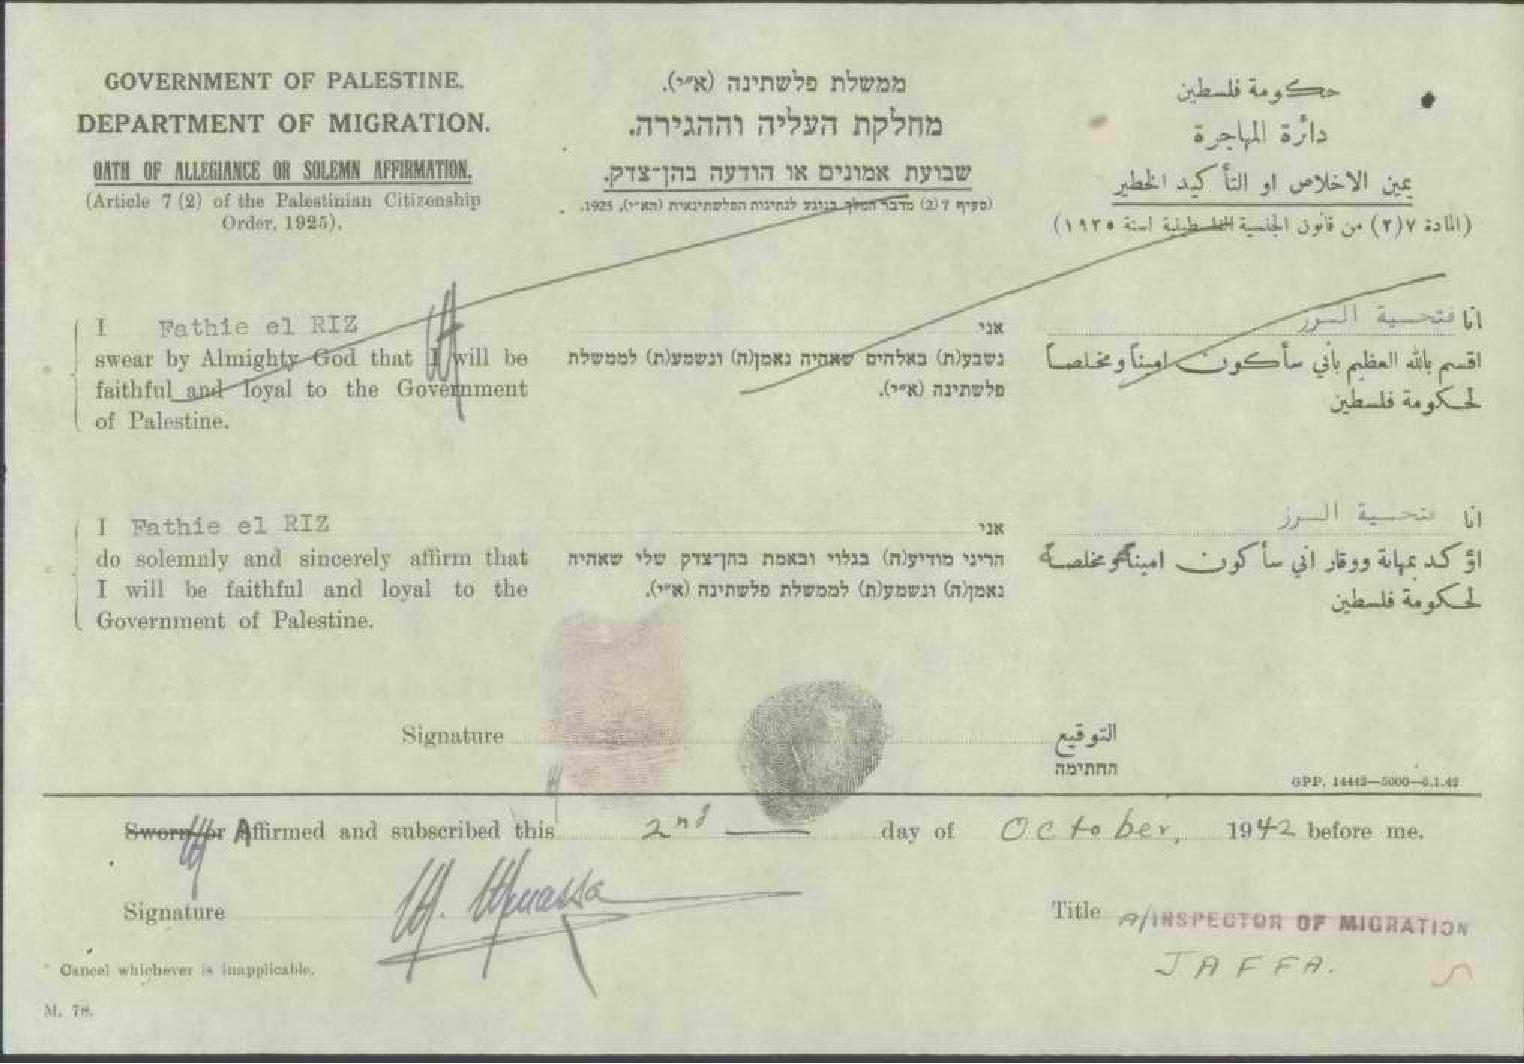 GOVERNMENT OF PALESTINE.
DEPARTMENT OF MIGRATION.
OATH OF ALLEGIANCE OR SOLEMN AFFIRMATION.
(Article 7 (2) of the Palestinian Citizenship
Order, 1925).
ממשלת פלשתינה (א״י).
מחלקת העליה וההגירה.
שבועת אמונים או הודעה בהן־צדק.
(סעיף 7 (2) מדבר המלך בנוגע לנתינות הפלשתינאית (הא״י), 1925.
حكومة فلسطين
دائرة المهاجرة
يمين الاخلاص او التأكيد الخطير
(المادة ٧(٢) من قانون الجنسية الفلسطينية لسنة ١٩٢٥)
I Fathie el RIZ
swear by Almighty God that I will be
faithful and loyal to the Government
of Palestine.
אני
נשבע(ת) באלהים שאהיה נאמן(ה) ונשמע(ת) לממשלת
פלשתינה (א״י).
انا فتحية الرز
اقسم بالله العظيم بأني سأكون اميناً ومخلصاً
لحكومة فلسطين
I Fathie el RIZ
do solemnly and sincerely affirm that
I will be faithful and loyal to the
Government of Palestine.
אני
הריני מודיע(ה) בגלוי ובאמת בהן־צדק שלי שאהיה
נאמן(ה) ונשמע(ת) לממשלת פלשתינה (א״י).
انا فتحية الرز
اؤكد بمهانة ووقار اني سأكون امينة ومخلصة
لحكومة فلسطين
Signature
التوقيع
החתימה
GPP. 14442—5000—6.1.42
Sworn or Affirmed and subscribed this 2nd day of October, 1942 before me.
Signature
Title A/INSPECTOR OF MIGRATION
JAFFA.
* Cancel whichever is inapplicable.
M. 78.